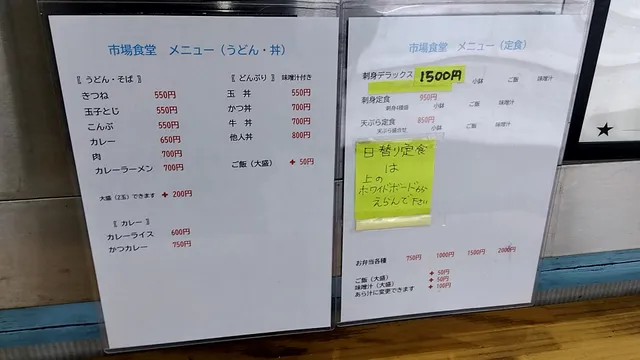 市場食堂 メニュー(うどん・丼)
〚 うどん・そば 〛
きつね 550円
玉子とじ 550円
こんぶ 550円
カレー 650円
肉 700円
カレーラーメン 700円
大盛(2玉)できます + 200円
〚 カレー 〛
カレーライス 600円
かつカレー 750円
〚 どんぶり 〛 味噌汁付き
玉 丼 550円
かつ丼 700円
牛 丼 700円
他人丼 800円
ご飯(大盛) + 50円
市場食堂 メニュー(定食)
刺身デラックス 1500円 小鉢 ご飯 味噌汁
刺身定食 950円
刺身4種盛 小鉢 ご飯 味噌汁
天ぷら定食 850円
天ぷら盛合せ 小鉢 ご飯 味噌汁
日替り定食
は
上の
ホワイドボードから
えらんで下さい
お弁当各種 750円 1000円 1500円 2000円
ご飯(大盛) + 50円
味噌汁(大盛) + 50円
あら汁に変更できます + 100円